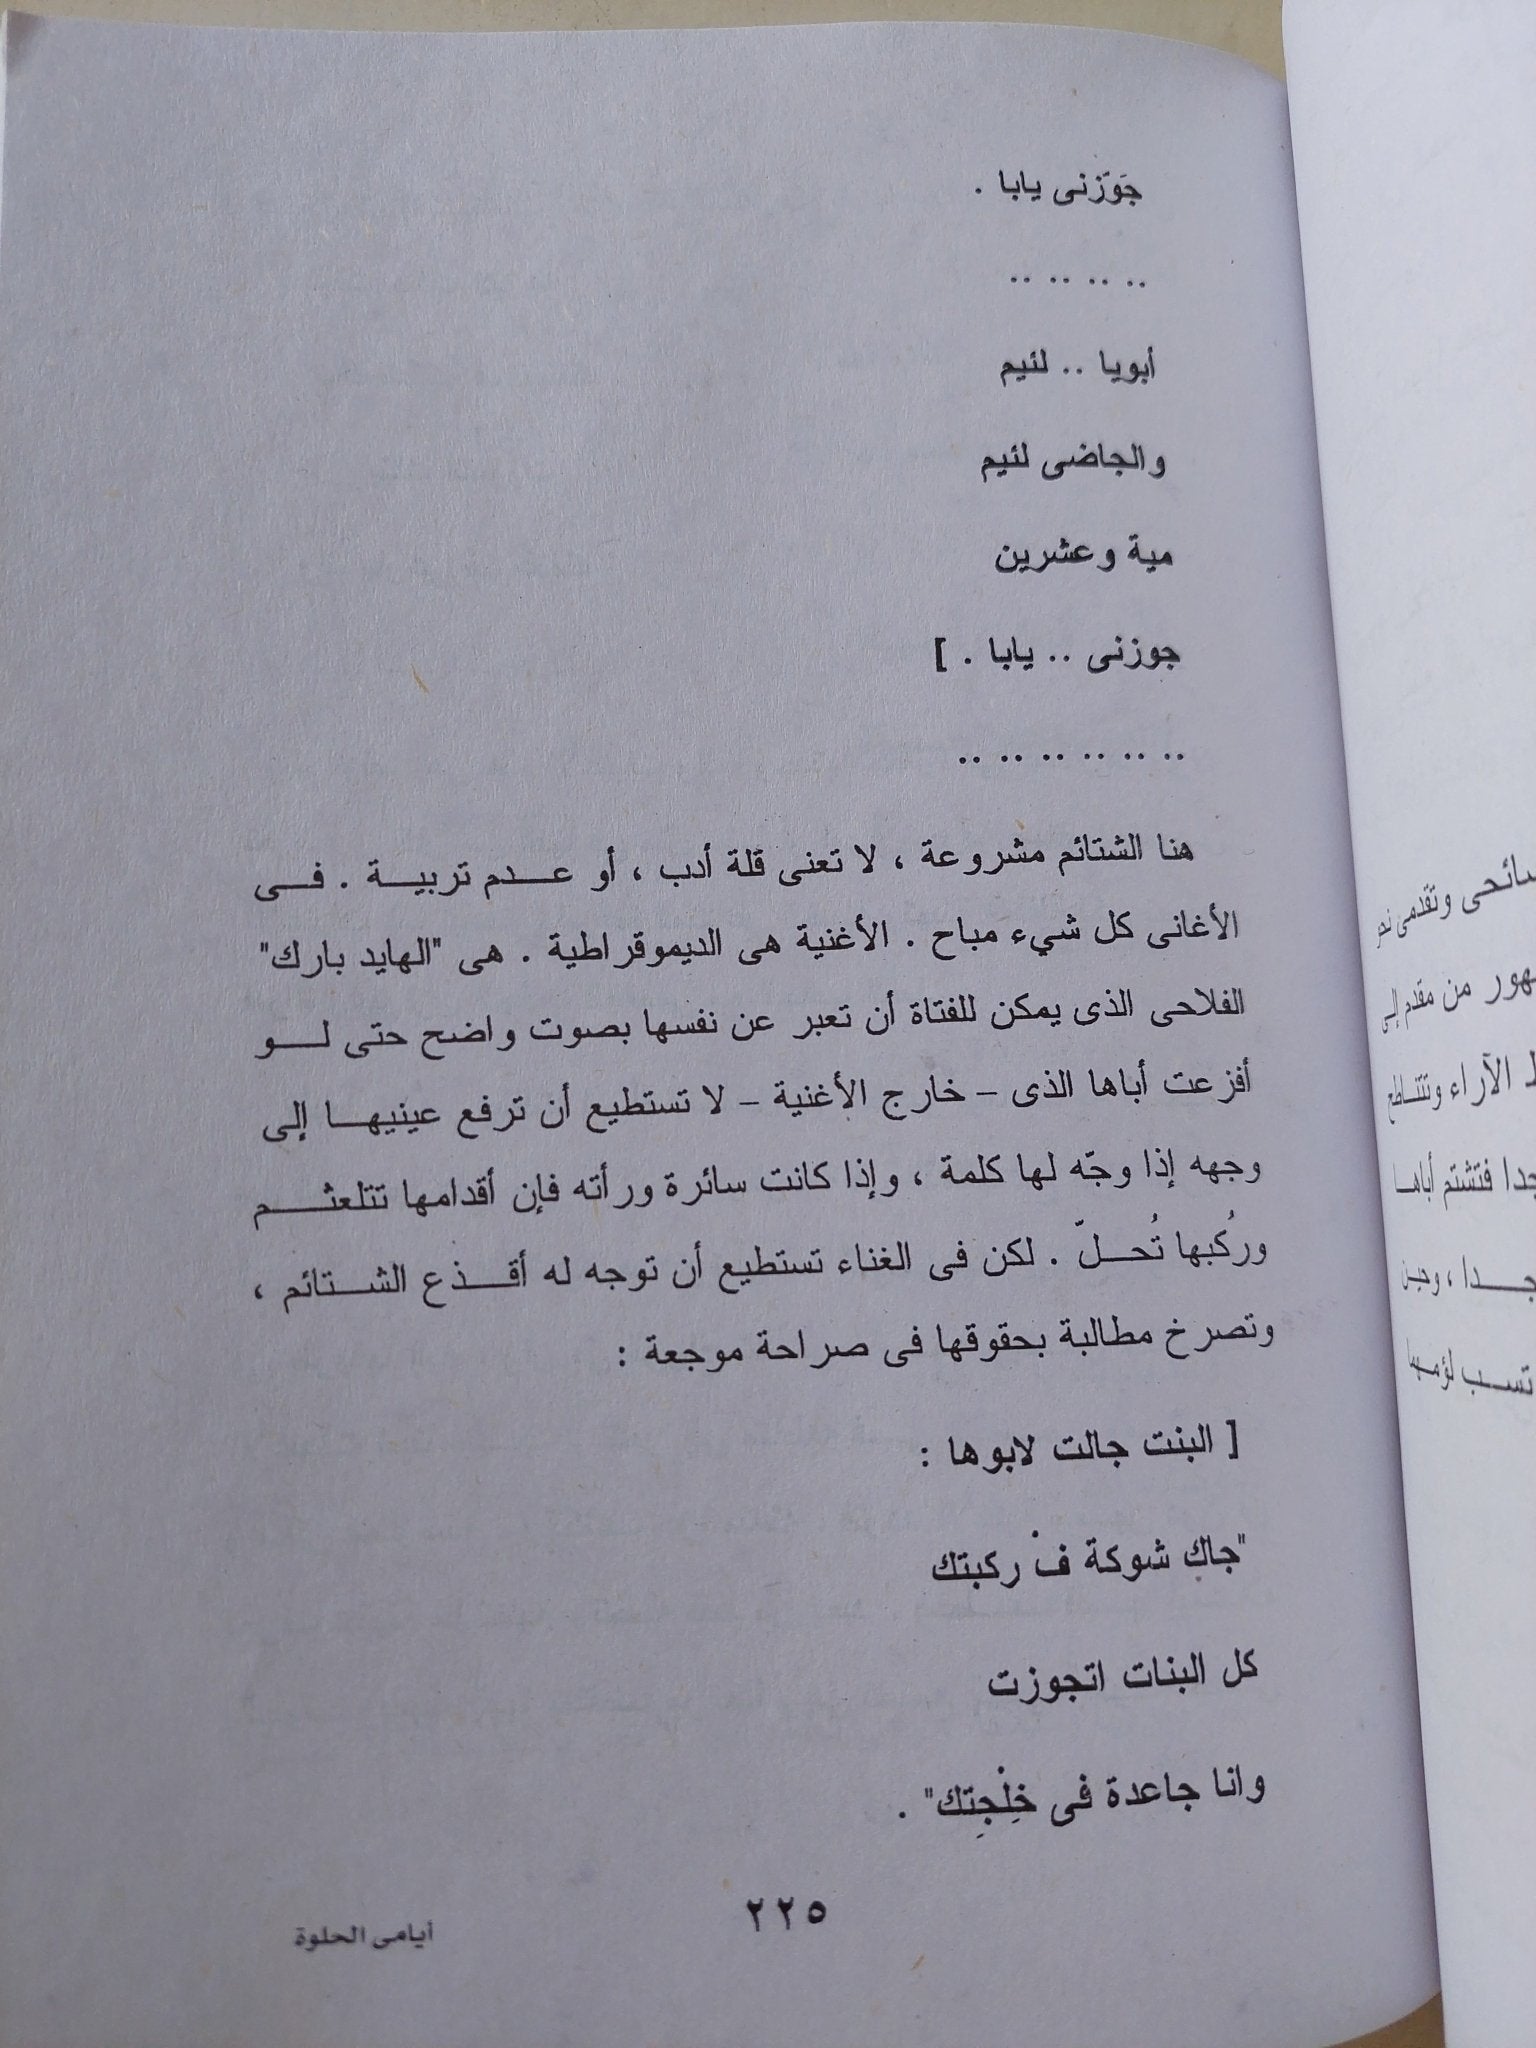 جَوّزنى يابا .
.. .. .. ..
أبويا .. لئيم
والجاضى لئيم
مية وعشرين
جوزنى .. يابا . ]
.. .. .. .. .. ..
هنا الشتائم مشروعة ، لا تعنى قلة أدب ، أو عــدم تربيــة . فــى
الأغانى كل شيء مباح . الأغنية هى الديموقراطية . هى "الهايد بارك"
الفلاحى الذى يمكن للفتاة أن تعبر عن نفسها بصوت واضح حتى لــو
أفزعت أباها الذى – خارج الأغنية – لا تستطيع أن ترفع عينيهــا إلى
وجهه إذا وجّه لها كلمة ، وإذا كانت سائرة ورأته فإن أقدامها تتلعثــم
ورُكبها تُحــلّ . لكن فى الغناء تستطيع أن توجه له أقــذع الشــتائم ،
وتصرخ مطالبة بحقوقها فى صراحة موجعة :
[ البنت جالت لابوها :
"جاك شوكة فْ ركبتك
كل البنات اتجوزت
وانا جاعدة فى خِلْجِتك" .
٢٢٥
أيامى الحلوة
سائحى وتقدمى نحو
هور من مقدم إلى
الآراء وتتناطح
جدا فتشتم أباهــا
جــدا ، وحين
تســب لؤمــها